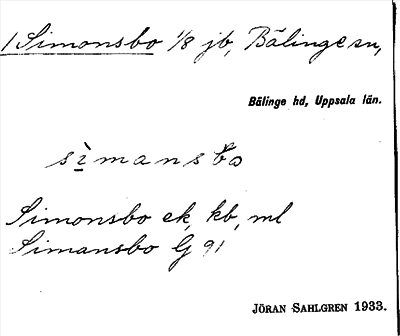 1 Simonsbo 1/8 jb, Bälinge sn,
Bälinge hd, Uppsala län.
sìmansbo
Simonsbo ek, kb, ml
Simansbo G 91
JÖRAN SAHLGREN 1933.